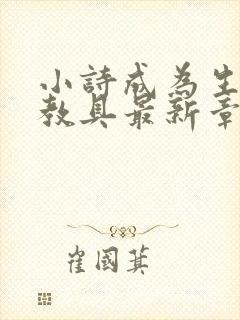 小詩成為生
教具最新章
崔國箕